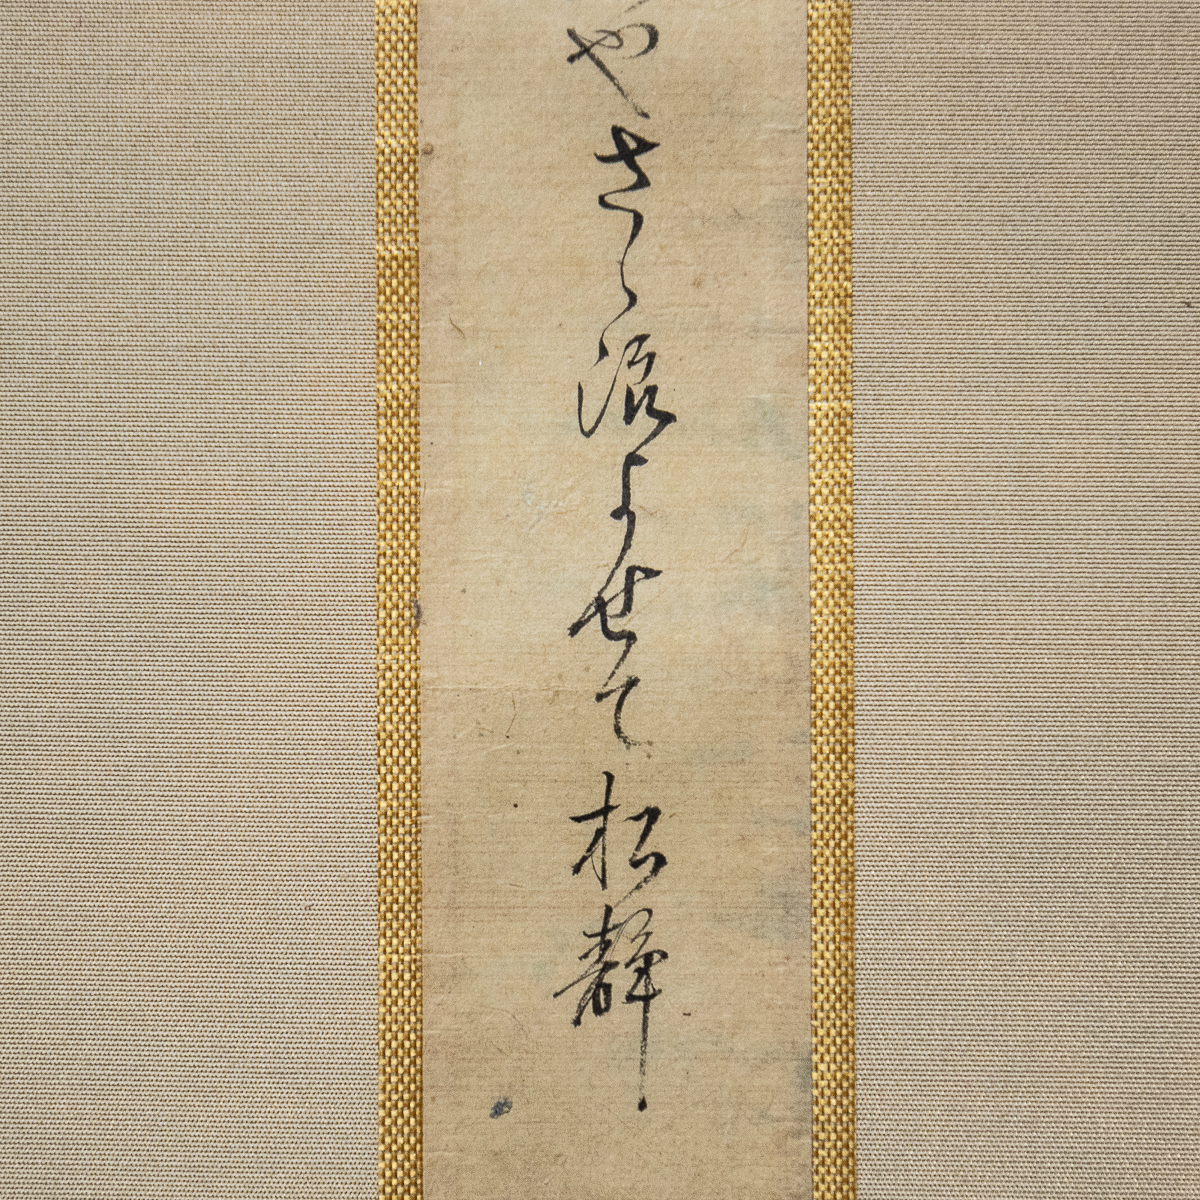 やさゝ浪よせて松静